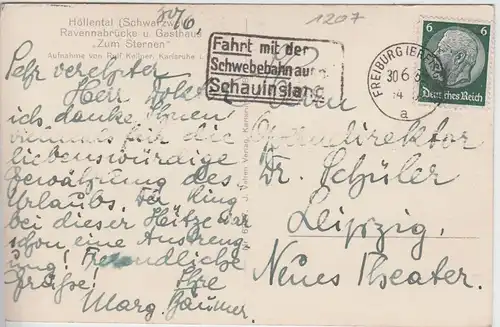 30/6.
1207
Höllental (Schwarzw
Ravennabrücke u. Gasthaus
"Zum Sternen"
Aufnahme von Rolf Kellner, Karlsruhe i.
Fahrt mit der
Schwebebahn auf
Schauinsland
FREIBURG (BREISG
30.6.3
a
6 6
Deutsches Reich
Sehr verehrter
Herr Doktor
ich danke Ihnen
vielmals für die
liebenswürdige
Gewährung des
Urlaubs. Der Ring
bei dieser Hitze war
schon eine Anstreng
ung! Freundliche
Grüsse! Ihre
Marg. Bäumer.
Herrn
Operndirektor
Dr. Schüler
Leipzig.
Neues Theater.